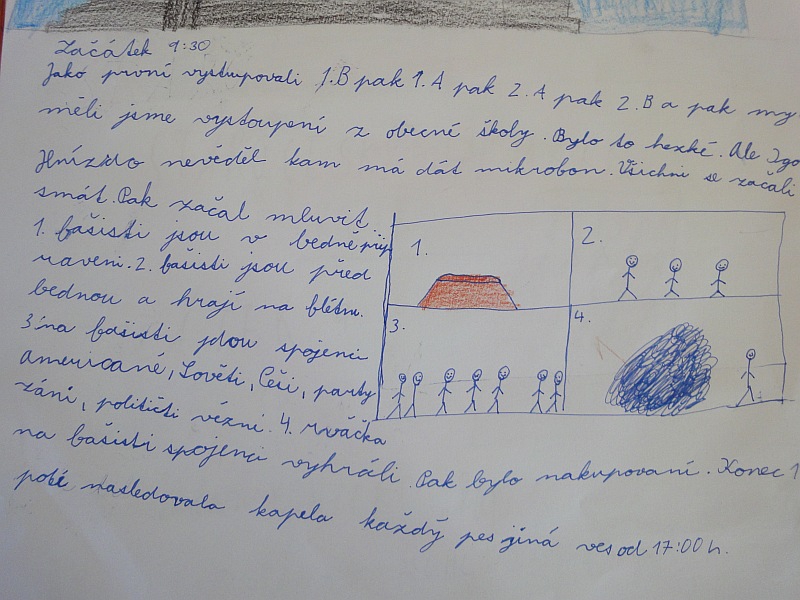 Začátek 9:30
Jako první vystupovali 1.B pak 1.A pak 2.A pak 2.B a pak my
měli jsme vystoupení z obecné školy. Bylo to hezké. Ale Igo
Hnízdo nevěděl kam má dát mikrobon. Všichni se začali
smát. Pak začal mluvit.
1. fašisti jsou v bedně přip
raveni. 2. fašisti jsou před
bednou a hrají na flétnu.
3. na fašisti jdou spojenci
američané, Sověti, Češi, party
záni, političtí vězni. 4. rvačka
na fašisti spojenci vyhráli. Pak bylo nakupovaní. Konec 1
poté nasledovala kapela každý pes jiná ves od 17:00 h.
1.
2.
3.
4.